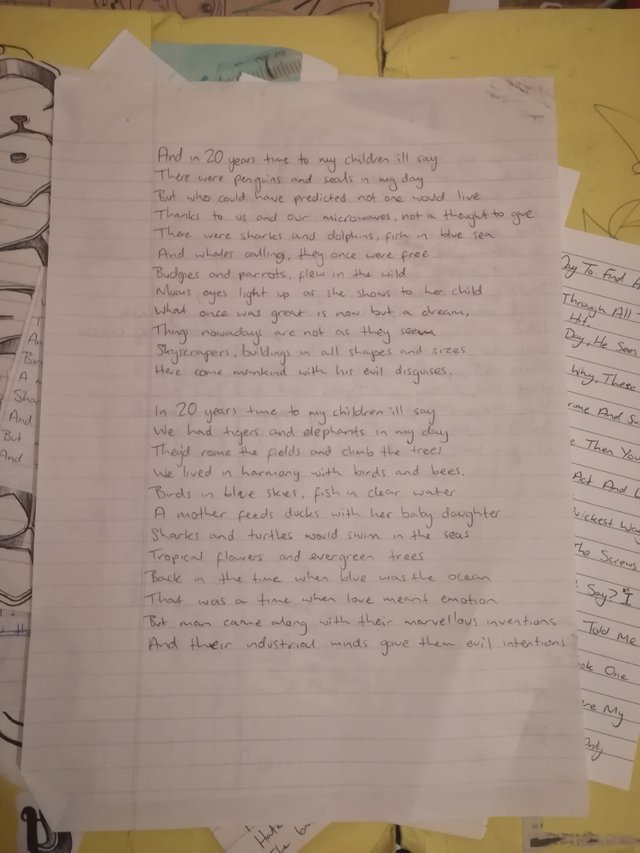 And in 20 years time to my children ill say
There were penguins and seals in my day
But who could have predicted not one would live
Thanks to us and our microwaves, not a thought to give
There were sharks and dolphins, fish in blue sea
And whales calling, they once were free
Budgies and parrots, flew in the wild
Mums eyes light up as she shows to her child
What once was great is now but a dream,
Things nowadays are not as they seem
Skyscrapers, buildings in all shapes and sizes
Here come mankind with his evil disguises.
In 20 years time to my children ill say
We had tigers and elephants in my day
They'd rome the fields and climb the trees
We lived in harmony with birds and bees.
Birds in blue skies, fish in clear water
A mother feeds ducks with her baby daughter
Sharks and turtles would swim in the seas
Tropical flowers and evergreen trees
Back in the time when blue was the ocean
That was a time when love meant emotion
But man came along with their marvellous inventions
And their industrial minds gave them evil intentions
Day To Find
Through All
Hit.
Day, He Sees
These
And
Then You
Act And
Quickest Way
The Screws
Say? I
Told Me
One
My
Only
A
And
But
And